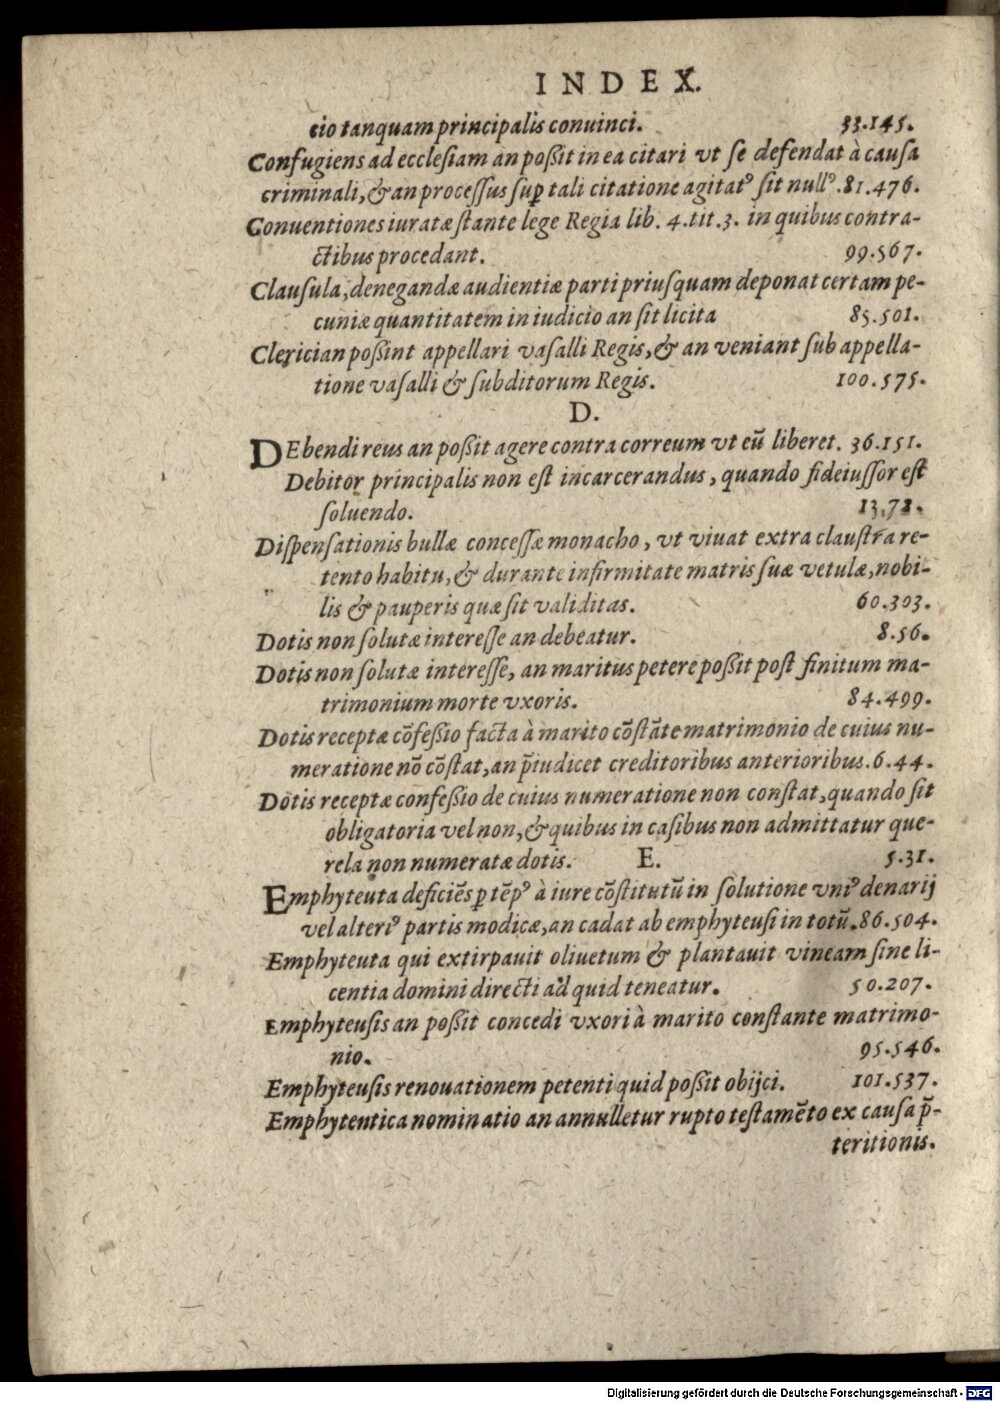 INDEX.
cio tanquam principalis conuinci. 33.145.
Confugiens ad ecclesiam an poßit in ea citari vt se defendat à causa
criminali, & an processus sup̱ tali citatione agitatꝰ sit nullꝰ. 81.476.
Conuentiones iuratæ stante lege Regia lib. 4. tit. 3. in quibus contra-
ctibus procedant. 99.567.
Clausula, denegandæ audientiæ parti priusquam deponat certam pe-
cuniæ quantitatem in iudicio an sit licita 85.501.
Clerici an poßint appellari vasalli Regis, & an veniant sub appella-
tione vasalli & subditorum Regis. 100.575.
D.
DEbendi reus an poßit agere contra correum vt eũ liberet. 36.151.
Debitor principalis non est incarcerandus, quando fideiussor est
soluendo. 13.72.
Dispensationis bullæ concessæ monacho, vt viuat extra claustra re-
tento habitu, & durante infirmitate matris suæ vetulæ, nobi-
lis & pauperis quæ sit validitas. 60.303.
Dotis non solutæ interesse an debeatur. 8.56.
Dotis non solutæ interesse, an maritus petere poßit post finitum ma-
trimonium morte vxoris. 84.499.
Dotis receptæ cõfeßio facta à marito cõstãte matrimonio de cuius nu-
meratione nõ cõstat, an p̃iudicet creditoribus anterioribus. 6.44.
Dotis receptæ confeßio de cuius numeratione non constat, quando sit
obligatoria vel non, & quibus in casibus non admittatur que-
rela non numeratæ dotis. E. 5.31.
Emphyteuta deficiẽs ꝑ tẽpꝰ à iure cõstitutũ in solutione vniꝰ denarij
vel alteriꝰ partis modicæ, an cadat ab emphyteusi in totũ. 86.504.
Emphyteuta qui extirpauit oliuetum & plantauit vineam sine li-
centia domini directi ad quid teneatur. 50.207.
Emphyteusis an poßit concedi vxori à marito constante matrimo-
nio. 95.546.
Emphyteusis renouationem petenti quid poßit obijci. 101.537.
Emphytentica nominatio an annulletur rupto testamẽto ex causa p̃-
teritionis.
Digitalisierung gefördert durch die Deutsche Forschungsgemeinschaft - DFG